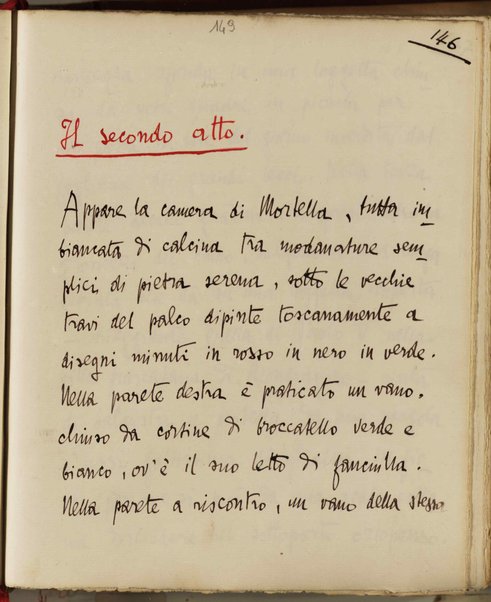 149
146
Il secondo atto.
Appare la camera di Mortella, tutta im
biancata di calcina tra modanature sem
plici di pietra serena, sotto le vecchie
travi del palco dipinte toscanamente a
disegni minuti in rosso in nero in verde.
Nella parete destra è praticato un vano.
chiuso da cortine di broccatello verde e
bianco, ov'è il suo letto di fanciulla.
Nella parete a riscontro, un vano della stessa